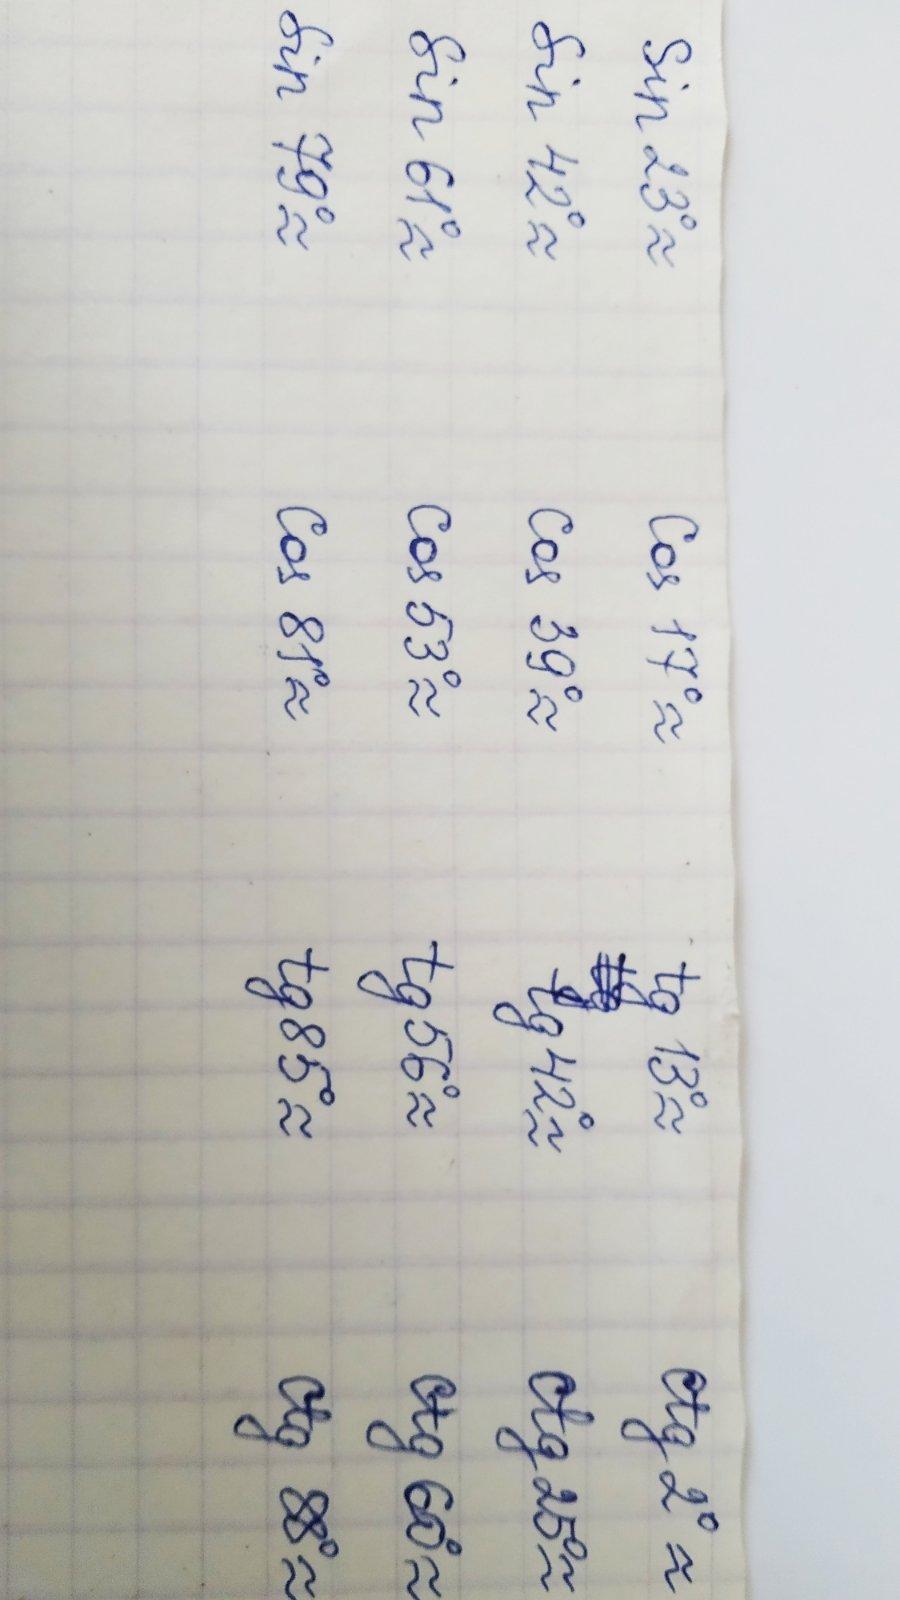 Sin 23°≈ Cos 17°≈ tg 13°≈ ctg 2°≈
Sin 42°≈ Cos 39°≈ tg 42°≈ ctg 25°≈
Sin 61°≈ Cos 53°≈ tg 56°≈ ctg 60°≈
Sin 79°≈ Cos 81°≈ tg 85°≈ ctg 88°≈